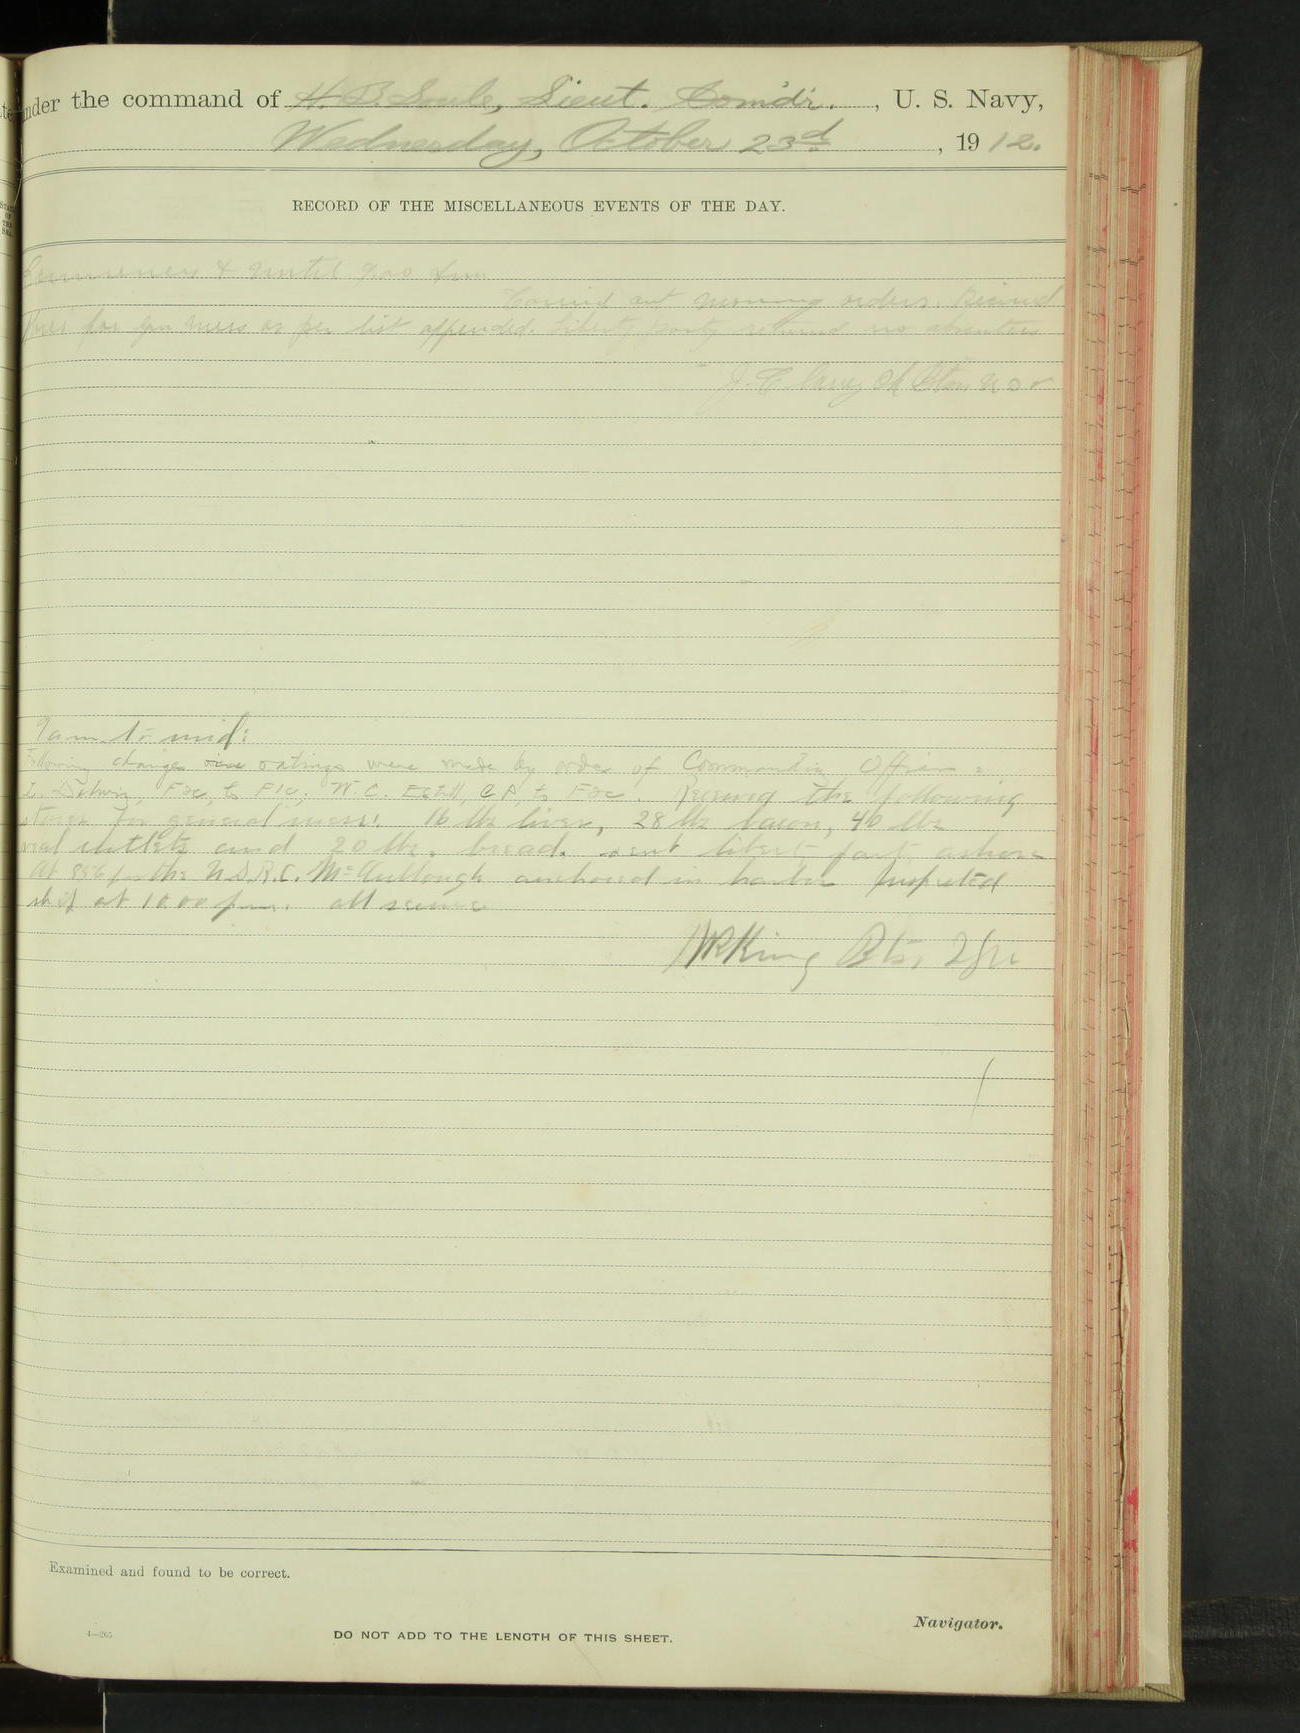 under the command of H. B. Soule, Lieut. Comd'r., U. S. Navy,
Wednesday, October 23d, 1912.
RECORD OF THE MISCELLANEOUS EVENTS OF THE DAY.
& until 9:00 am
Carried out morning orders. Received
for gen mess as per list appended. Liberty party returned no absentees
J. C.
9 am to mid:
Following changes in ratings were made by order of Commanding Officer:
F2c, to F1c; W. C. C.P., to F2c. Received the following
stores for general mess: 16 lbs liver, 28 lbs bacon, 40 lbs
veal cutlets and 20 lbs. bread. Sent liberty party ashore
At 8 56 pm the U.S.R.C. McCullough anchored in harbor Inspected
ship at 10 00 pm. all secure
WR King Btsn USN
Examined and found to be correct.
Navigator.
4—265
DO NOT ADD TO THE LENGTH OF THIS SHEET.